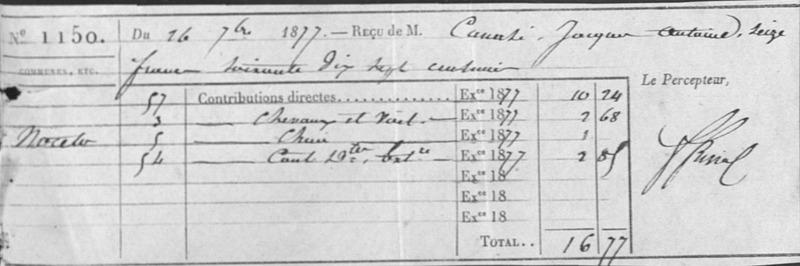 No. 1150. Du 26 7bre 1877. — Reçu de M. Canarli Jacques Antoine, seize
francs soixante dix sept centimes
COMMUNES, ETC.
Le Percepteur,
57 Contributions directes Exce 1877 10 24
3 — Chevaux et Voit. — Exce 1877 2 68
Noceto 5 — Chien — Exce 1877 1
54 — Exce 1877 2 85
Exce 18
Exce 18
Exce 18
TOTAL.. 16 77